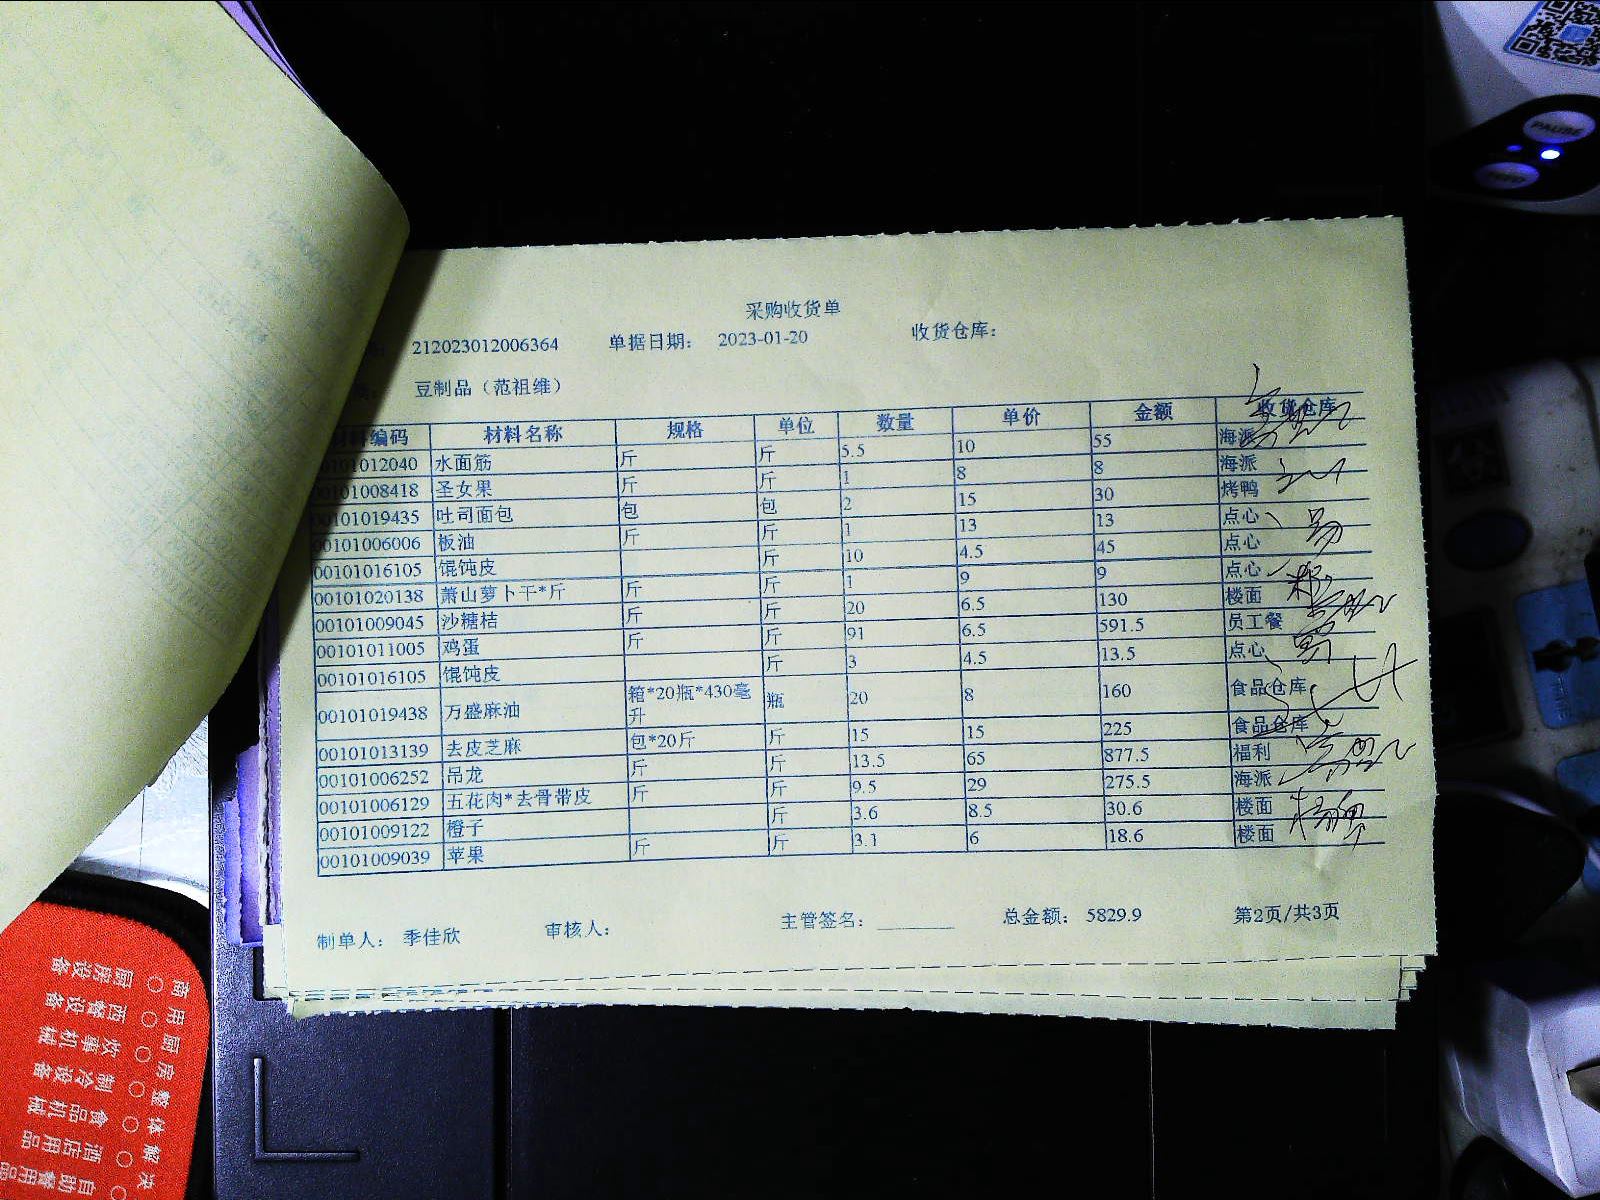 采购收货单
212023012006364 单据日期： 2023-01-20 收货仓库：
豆制品（范祖维）
编码 材料名称 规格 单位 数量 单价 金额 收货仓库
00101012040 水面筋 斤 斤 5.5 10 55 海派
00101008418 圣女果 斤 斤 1 8 8 海派
00101019435 吐司面包 包 包 2 15 30 烤鸭
00101006006 板油 斤 斤 1 13 13 点心
00101016105 馄饨皮 斤 10 4.5 45 点心
00101020138 萧山萝卜干*斤 斤 斤 1 9 9 点心
00101009045 沙糖桔 斤 斤 20 6.5 130 楼面
00101011005 鸡蛋 斤 斤 91 6.5 591.5 员工餐
00101016105 馄饨皮 斤 3 4.5 13.5 点心
00101019438 万盛麻油 箱*20瓶*430毫升 瓶 20 8 160 食品仓库
00101013139 去皮芝麻 包*20斤 斤 15 15 225 食品仓库
00101006252 吊龙 斤 斤 13.5 65 877.5 福利
00101006129 五花肉*去骨带皮 斤 斤 9.5 29 275.5 海派
00101009122 橙子 斤 3.6 8.5 30.6 楼面
00101009039 苹果 斤 斤 3.1 6 18.6 楼面
制单人： 季佳欣 审核人： 主管签名： 总金额： 5829.9 第2页/共3页
PAUSE
商用厨房整体解决
厨房设备
西餐设备
炊事机械
制冷设备
食品机械
酒店用品
自助餐用品